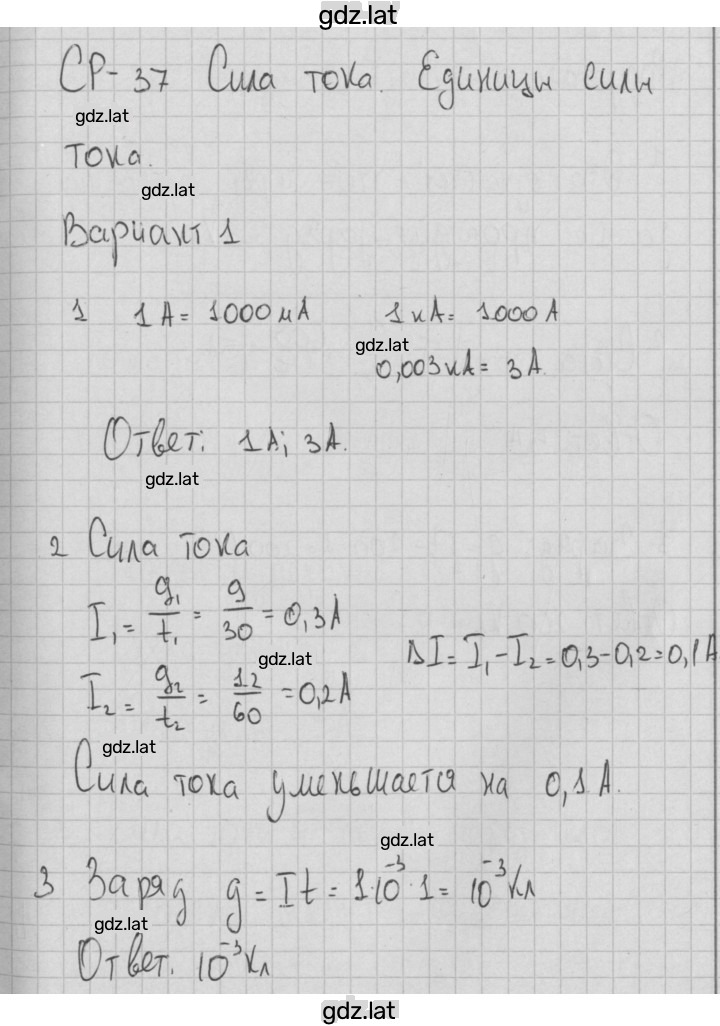 gdz.lat
СР-37 Сила тока. Единицы силы
gdz.lat
тока.
gdz.lat
Вариант 1
1 1А = 1000 мА 1 кА = 1000 А
gdz.lat
0,003 кА = 3 А.
Ответ: 1А; 3А.
gdz.lat
2 Сила тока
I₁ = q₁/t₁ = 9/30 = 0,3А
gdz.lat
ΔI = I₁ - I₂ = 0,3 - 0,2 = 0,1 А
I₂ = q₂/t₂ = 12/60 = 0,2А
gdz.lat
Сила тока уменьшается на 0,1А.
gdz.lat
3 Заряд q = It = 1·10⁻³·1 = 10⁻³ Кл
gdz.lat
Ответ. 10⁻³ Кл
gdz.lat